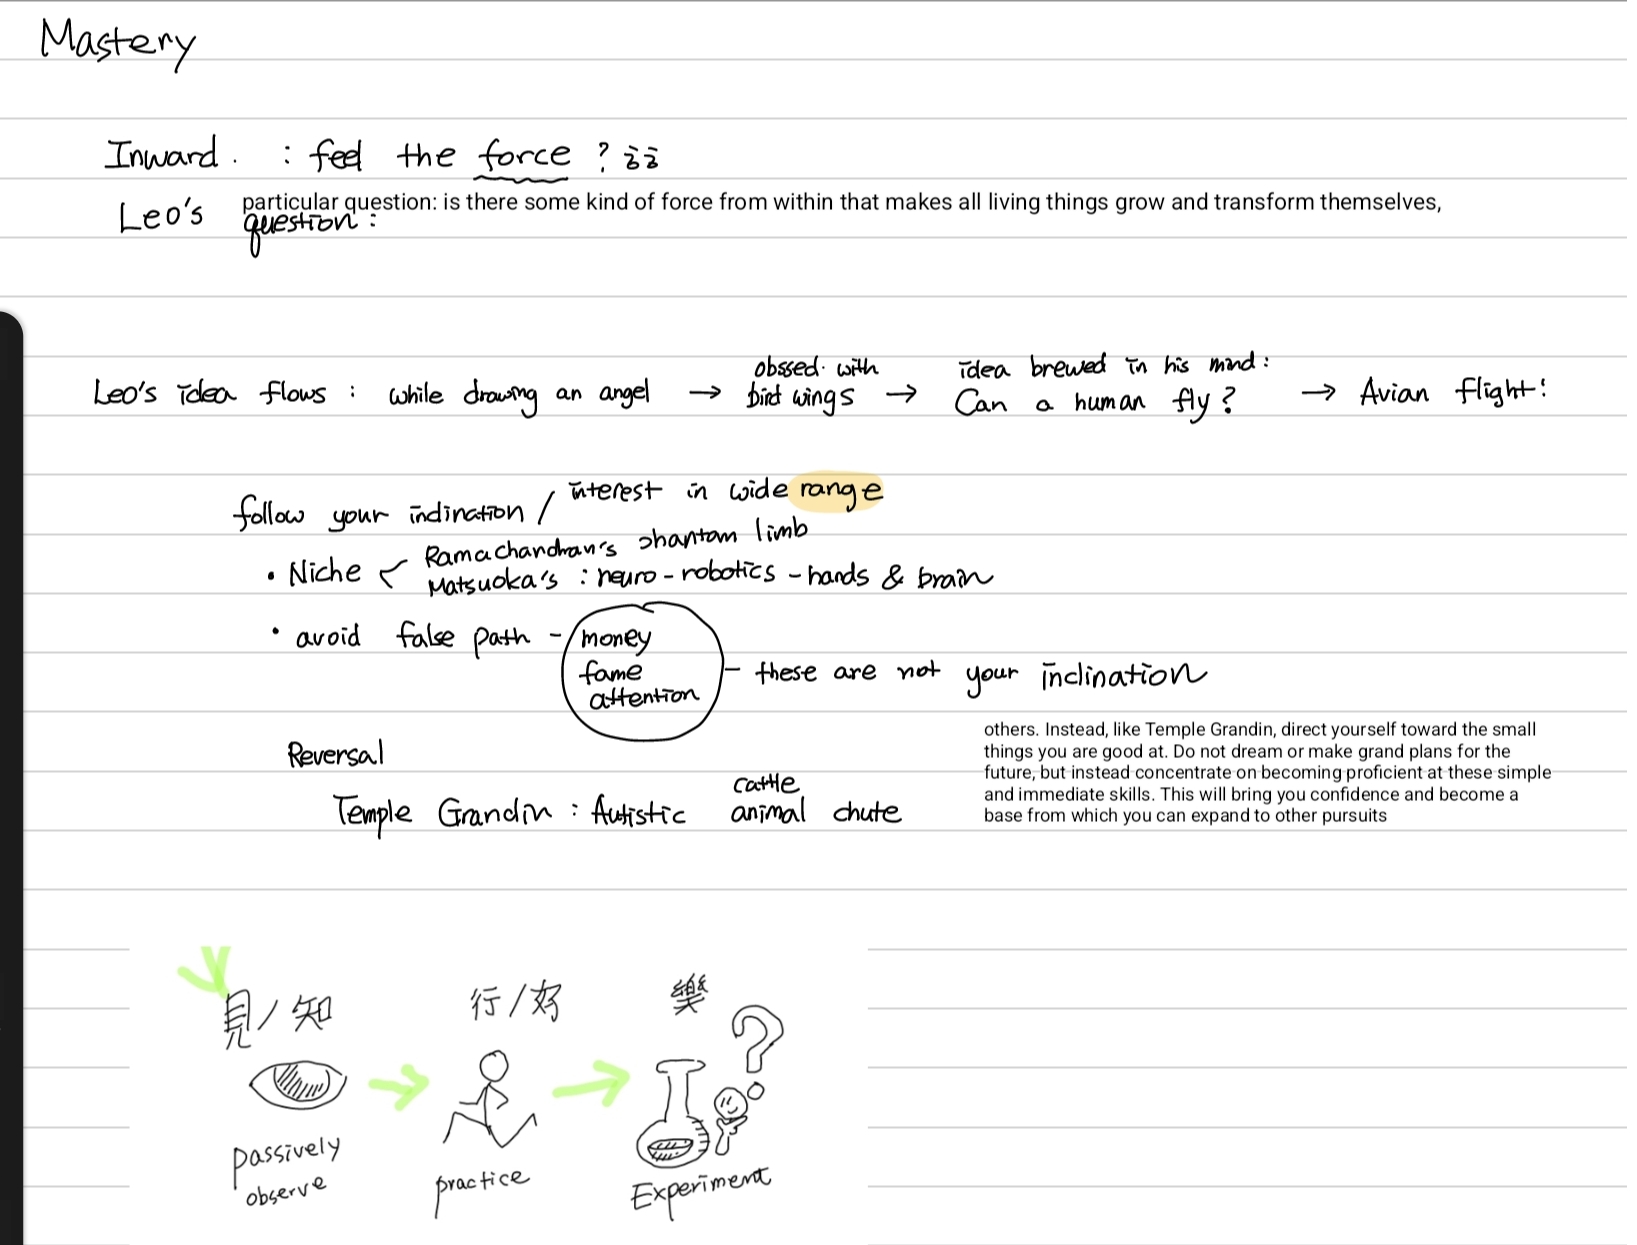 Mastery
Inward. : feel the force ? ㅎㅎ
particular question: is there some kind of force from within that makes all living things grow and transform themselves,
Leo's question :
Leo's idea flows : while drawing an angel → obssed with bird wings → idea brewed in his mind : Can a human fly? → Avian flight!
follow your indination / interest in wide range
• Niche < Ramachandran's phantom limb
Matsuoka's : neuro-robotics - hands & brain
• avoid false path - money
fame
attention
- these are not your inclination
Reversal
Temple Grandin : Autistic cattle animal chute
others. Instead, like Temple Grandin, direct yourself toward the small
things you are good at. Do not dream or make grand plans for the
future, but instead concentrate on becoming proficient at these simple
and immediate skills. This will bring you confidence and become a
base from which you can expand to other pursuits
見/知
行/好
樂
?
passively
observe
practice
Experiment